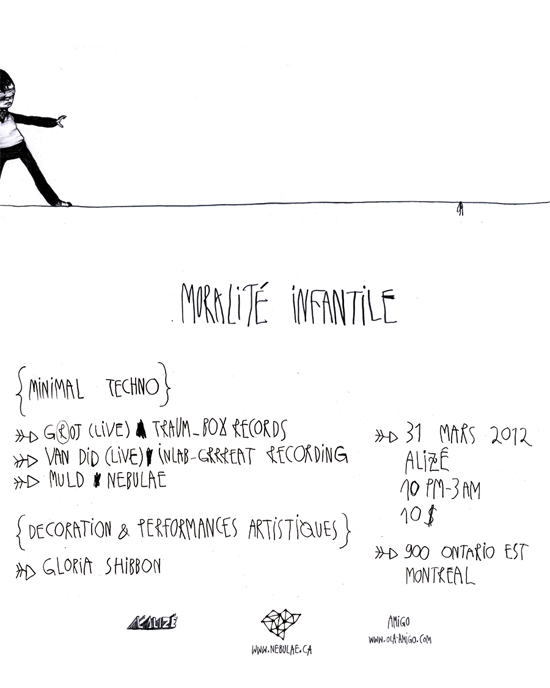 MORALITÉ INFANTILE
{MINIMAL TECHNO}
GROJ (LIVE) TRAUM_BOX RECORDS
VAN DID (LIVE) INLAB-GRRREAT RECORDING
MULD NEBULAE
{DECORATION & PERFORMANCES ARTISTIQUES}
GLORIA SHIBBON
31 MARS 2012
ALIZÉ
10 PM-3AM
10$
900 ONTARIO EST
MONTREAL
ALIZÉ
WWW.NEBULAE.CA
AMIGO
WWW.OLA-AMIGO.COM